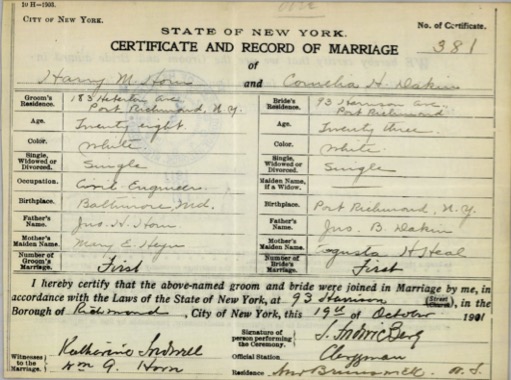 10 H-1903.
CITY OF NEW YORK.
STATE OF NEW YORK.
No. of Certificate.
CERTIFICATE AND RECORD OF MARRIAGE
381
of
Harry M. Horn and Cornelia H. Dakin
Groom's Residence. 183 Heberton Ave Port Richmond, N.Y.
Bride's Residence. 93 Harrison Ave. Port Richmond
Age. Twenty eight.
Age. Twenty three.
Color. White.
Color. White.
Single, Widowed or Divorced. Single
Single, Widowed or Divorced. Single
Occupation. Civil Engineer.
Maiden Name, if a Widow.
Birthplace. Baltimore Md.
Birthplace. Port Richmond, N.Y.
Father's Name. Jno. H. Horn
Father's Name. Jno. B. Dakin
Mother's Maiden Name. Mary E.
Mother's Maiden Name. H. Heal
Number of Groom's Marriage. First
Number of Bride's Marriage. First
I hereby certify that the above-named groom and bride were joined in Marriage by me, in
accordance with the Laws of the State of New York, at 93 Harrison (Street Church), in the
Borough of Richmond, City of New York, this 19th of October 1901
Signature of person performing the Ceremony.
Witnesses to the Marriage. Katharine
Wm G. Horn
Official Station. Clergyman
Residence New Brunswick N.J.